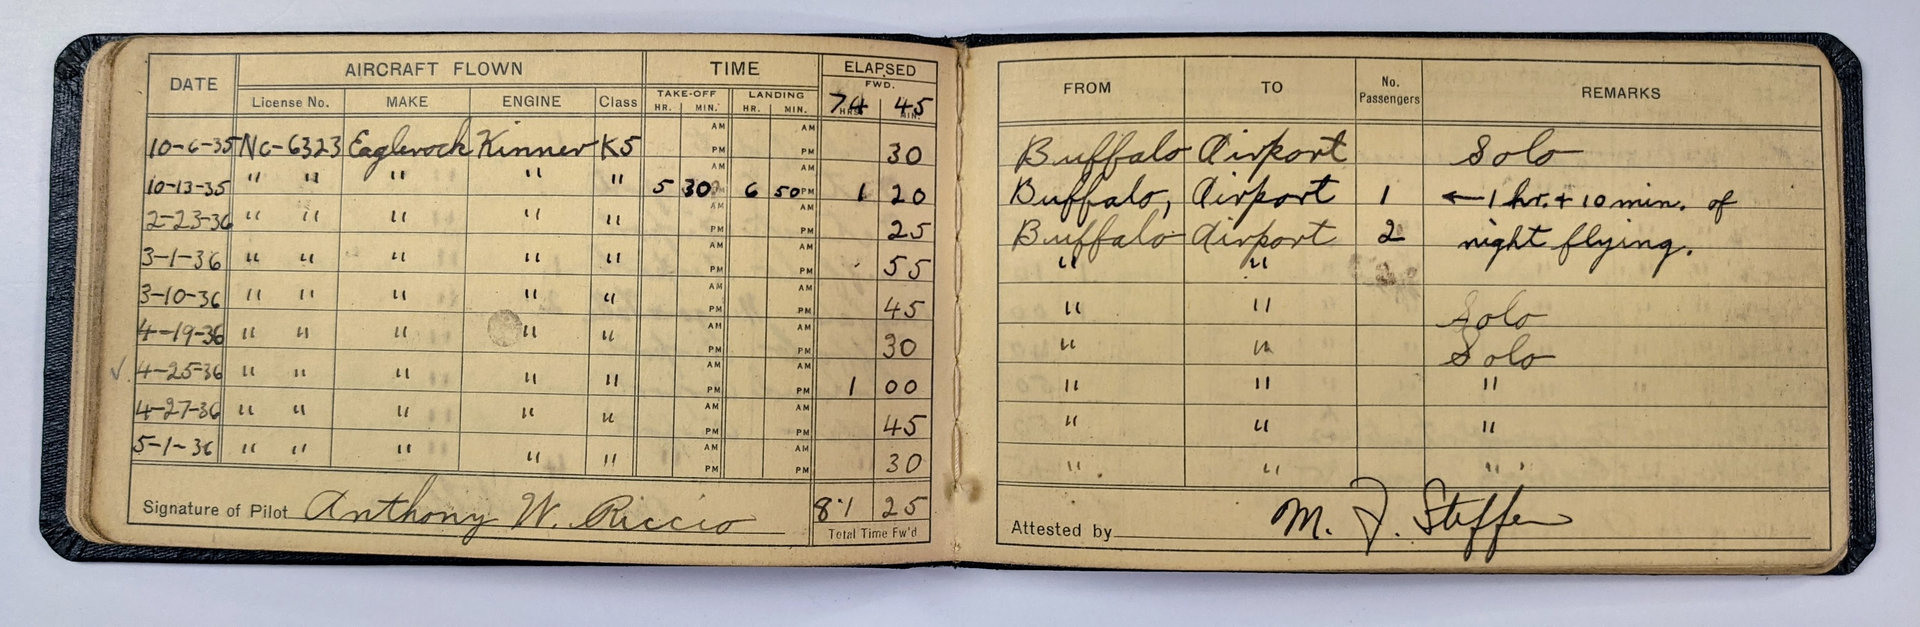 DATE AIRCRAFT FLOWN TIME ELAPSED FROM TO No. Passengers REMARKS
License No. MAKE ENGINE Class TAKE-OFF HR. MIN. LANDING HR. MIN. FWD. 74 45 HRS. MIN.
10-6-35 NC-6323 Eaglerock Kinner K5 AM PM AM PM 30 Buffalo Airport Solo
10-13-35 " " " " " 5 30 AM PM 6 50 AM PM 1 20 Buffalo, Airport 1 ←1 hr. + 10 min. of
2-23-36 " " " " " AM PM AM PM 25 Buffalo Airport 2 night flying.
3-1-36 " " " " " AM PM AM PM 55 " "
3-10-36 " " " " " AM PM AM PM 45 " " Solo
4-19-36 " " " " " AM PM AM PM 30 " " Solo
✓. 4-25-36 " " " " " AM PM AM PM 1 00 " " "
4-27-36 " " " " " AM PM AM PM 45 " " "
5-1-36 " " " " " AM PM AM PM 30 " " "
Signature of Pilot Anthony W. Riccio 81 25 Total Time Fw'd
Attested by M. J. Steffen